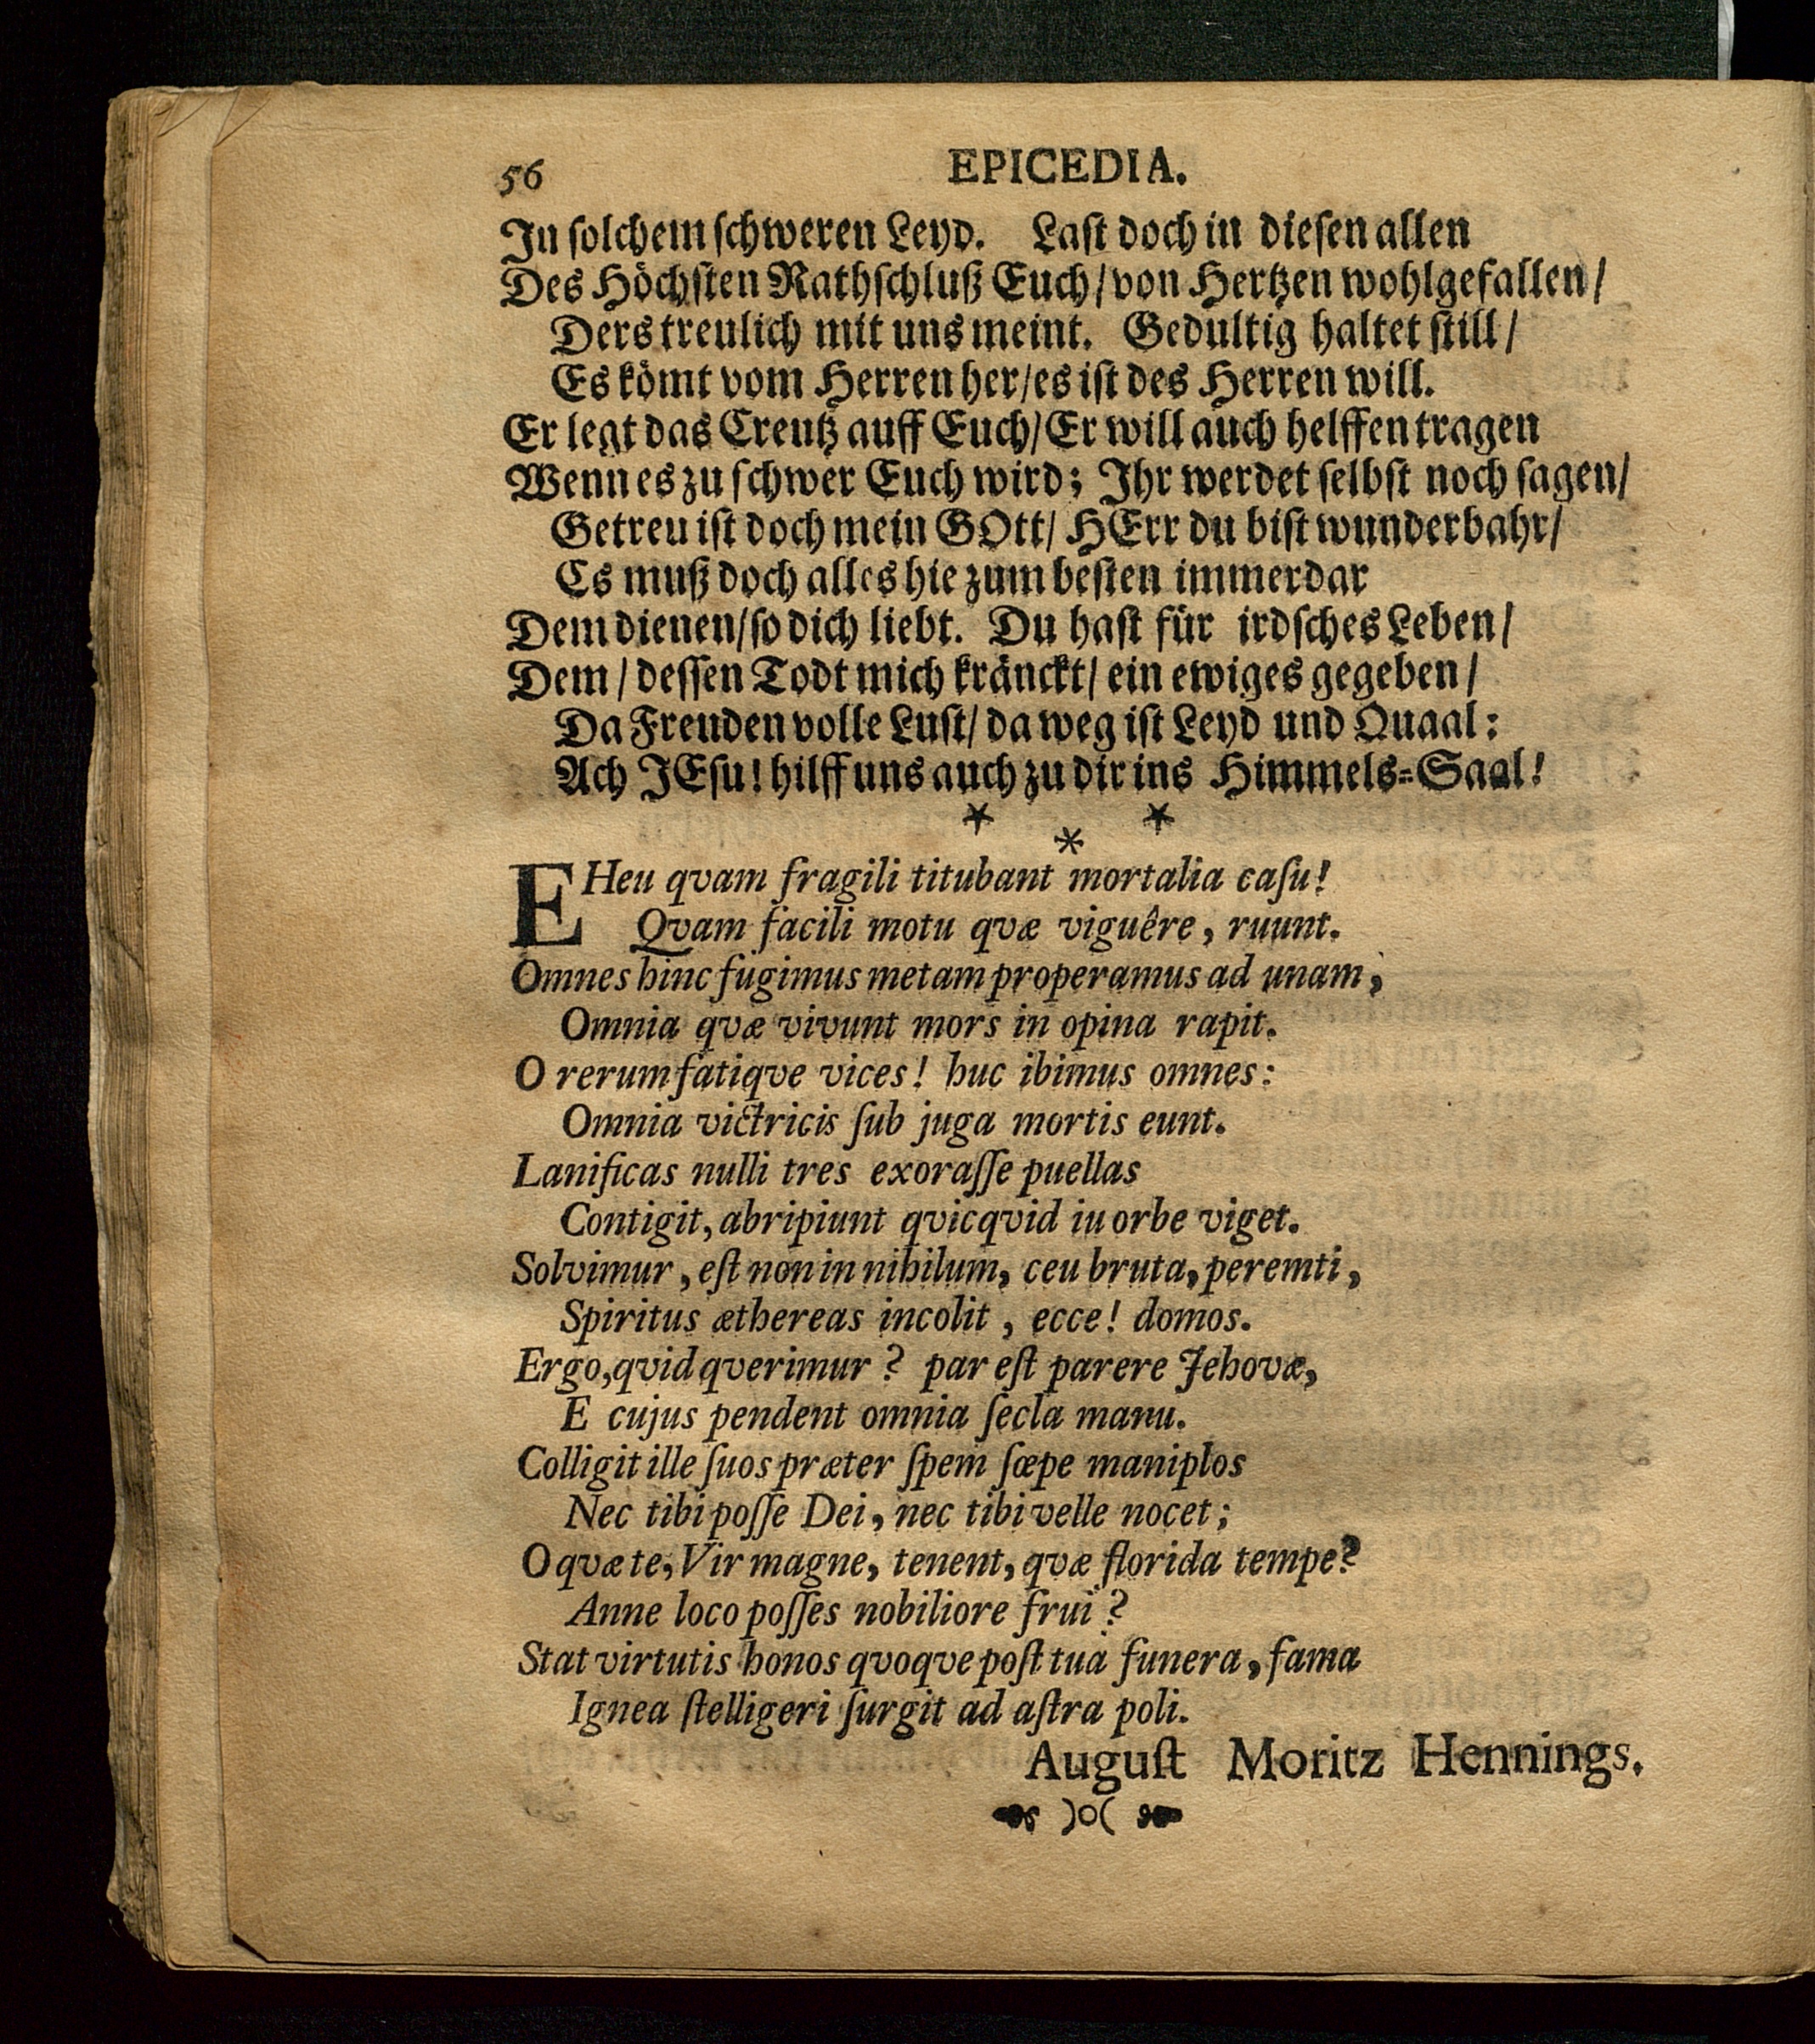 56 EPICEDIA.
In ſolchem ſchweren Leyd. Laſt doch in dieſen allen
Des Höchſten Rathſchluß Euch/ von Hertzen wohlgefallen/
Ders treulich mit uns meint. Gedultig haltet ſtill/
Es kömt vom Herren her/ es iſt des Herren will.
Er legt das Creutz auff Euch/ Er will auch helffen tragen
Wenn es zu ſchwer Euch wird; Ihr werdet ſelbſt noch ſagen/
Getreu iſt doch mein GOtt/ HErr du biſt wunderbahr/
Es muß doch alles hie zum beſten immerdar
Dem dienen/ ſo dich liebt. Du haſt für irdſches Leben/
Dem/ deſſen Todt mich kränckt/ ein ewiges gegeben/
Da Freuden volle Luſt/ da weg iſt Leyd und Quaal:
Ach JEſu! hilff uns auch zu dir ins Himmels-Saal!
* * *
EHeu qvam fragili titubant mortalia caſu!
Qvam facili motu qvæ viguêre, ruunt.
Omnes hinc fugimus metam properamus ad unam,
Omnia qvæ vivunt mors in opina rapit.
O rerum fatiqve vices! huc ibimus omnes:
Omnia victricis ſub juga mortis eunt.
Lanificas nulli tres exoraſſe puellas
Contigit, abripiunt qvicqvid iu orbe viget.
Solvimur, eſt non in nihilum, ceu bruta, peremti,
Spiritus æthereas incolit, ecce! domos.
Ergo, qvid qverimur? par eſt parere Jehovæ,
E cujus pendent omnia ſecla manu.
Colligit ille ſuos præter ſpem ſœpe maniplos
Nec tibi poſſe Dei, nec tibi velle nocet;
O qvæ te, Vir magne, tenent, qvæ florida tempe?
Anne loco poſſes nobiliore frui?
Stat virtutis honos qvoqve poſt tua funera, fama
Ignea ſtelligeri ſurgit ad aſtra poli.
Auguſt Moritz Hennings.
)o(